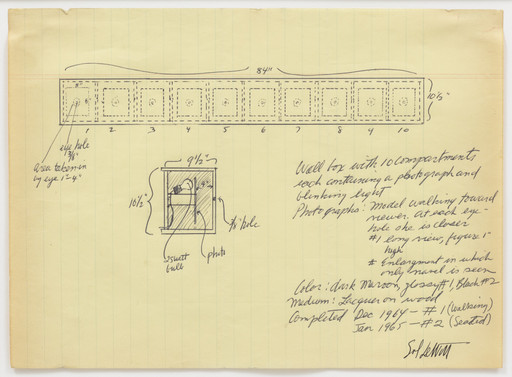 84"
10½"
1 2 3 4 5 6 7 8 9 10
eye hole
area taken in
by eye 1"-4"
9½"
10½"
hole
photo
25 watt
bulb
Wall box with 10 compartments
each containing a photograph and
blinking light
Photographs: Model walking toward
viewer. at each eye-
hole she is closer
#1 long view, figure 1"
high
Enlargment in which
only navel is seen
Color: dark Maroon, glossy #1, Black #2
Medium: Lacquer on wood
Completed Dec 1964 - #1 (walking)
Jan 1965 - #2 (Seated)
Sol LeWitt